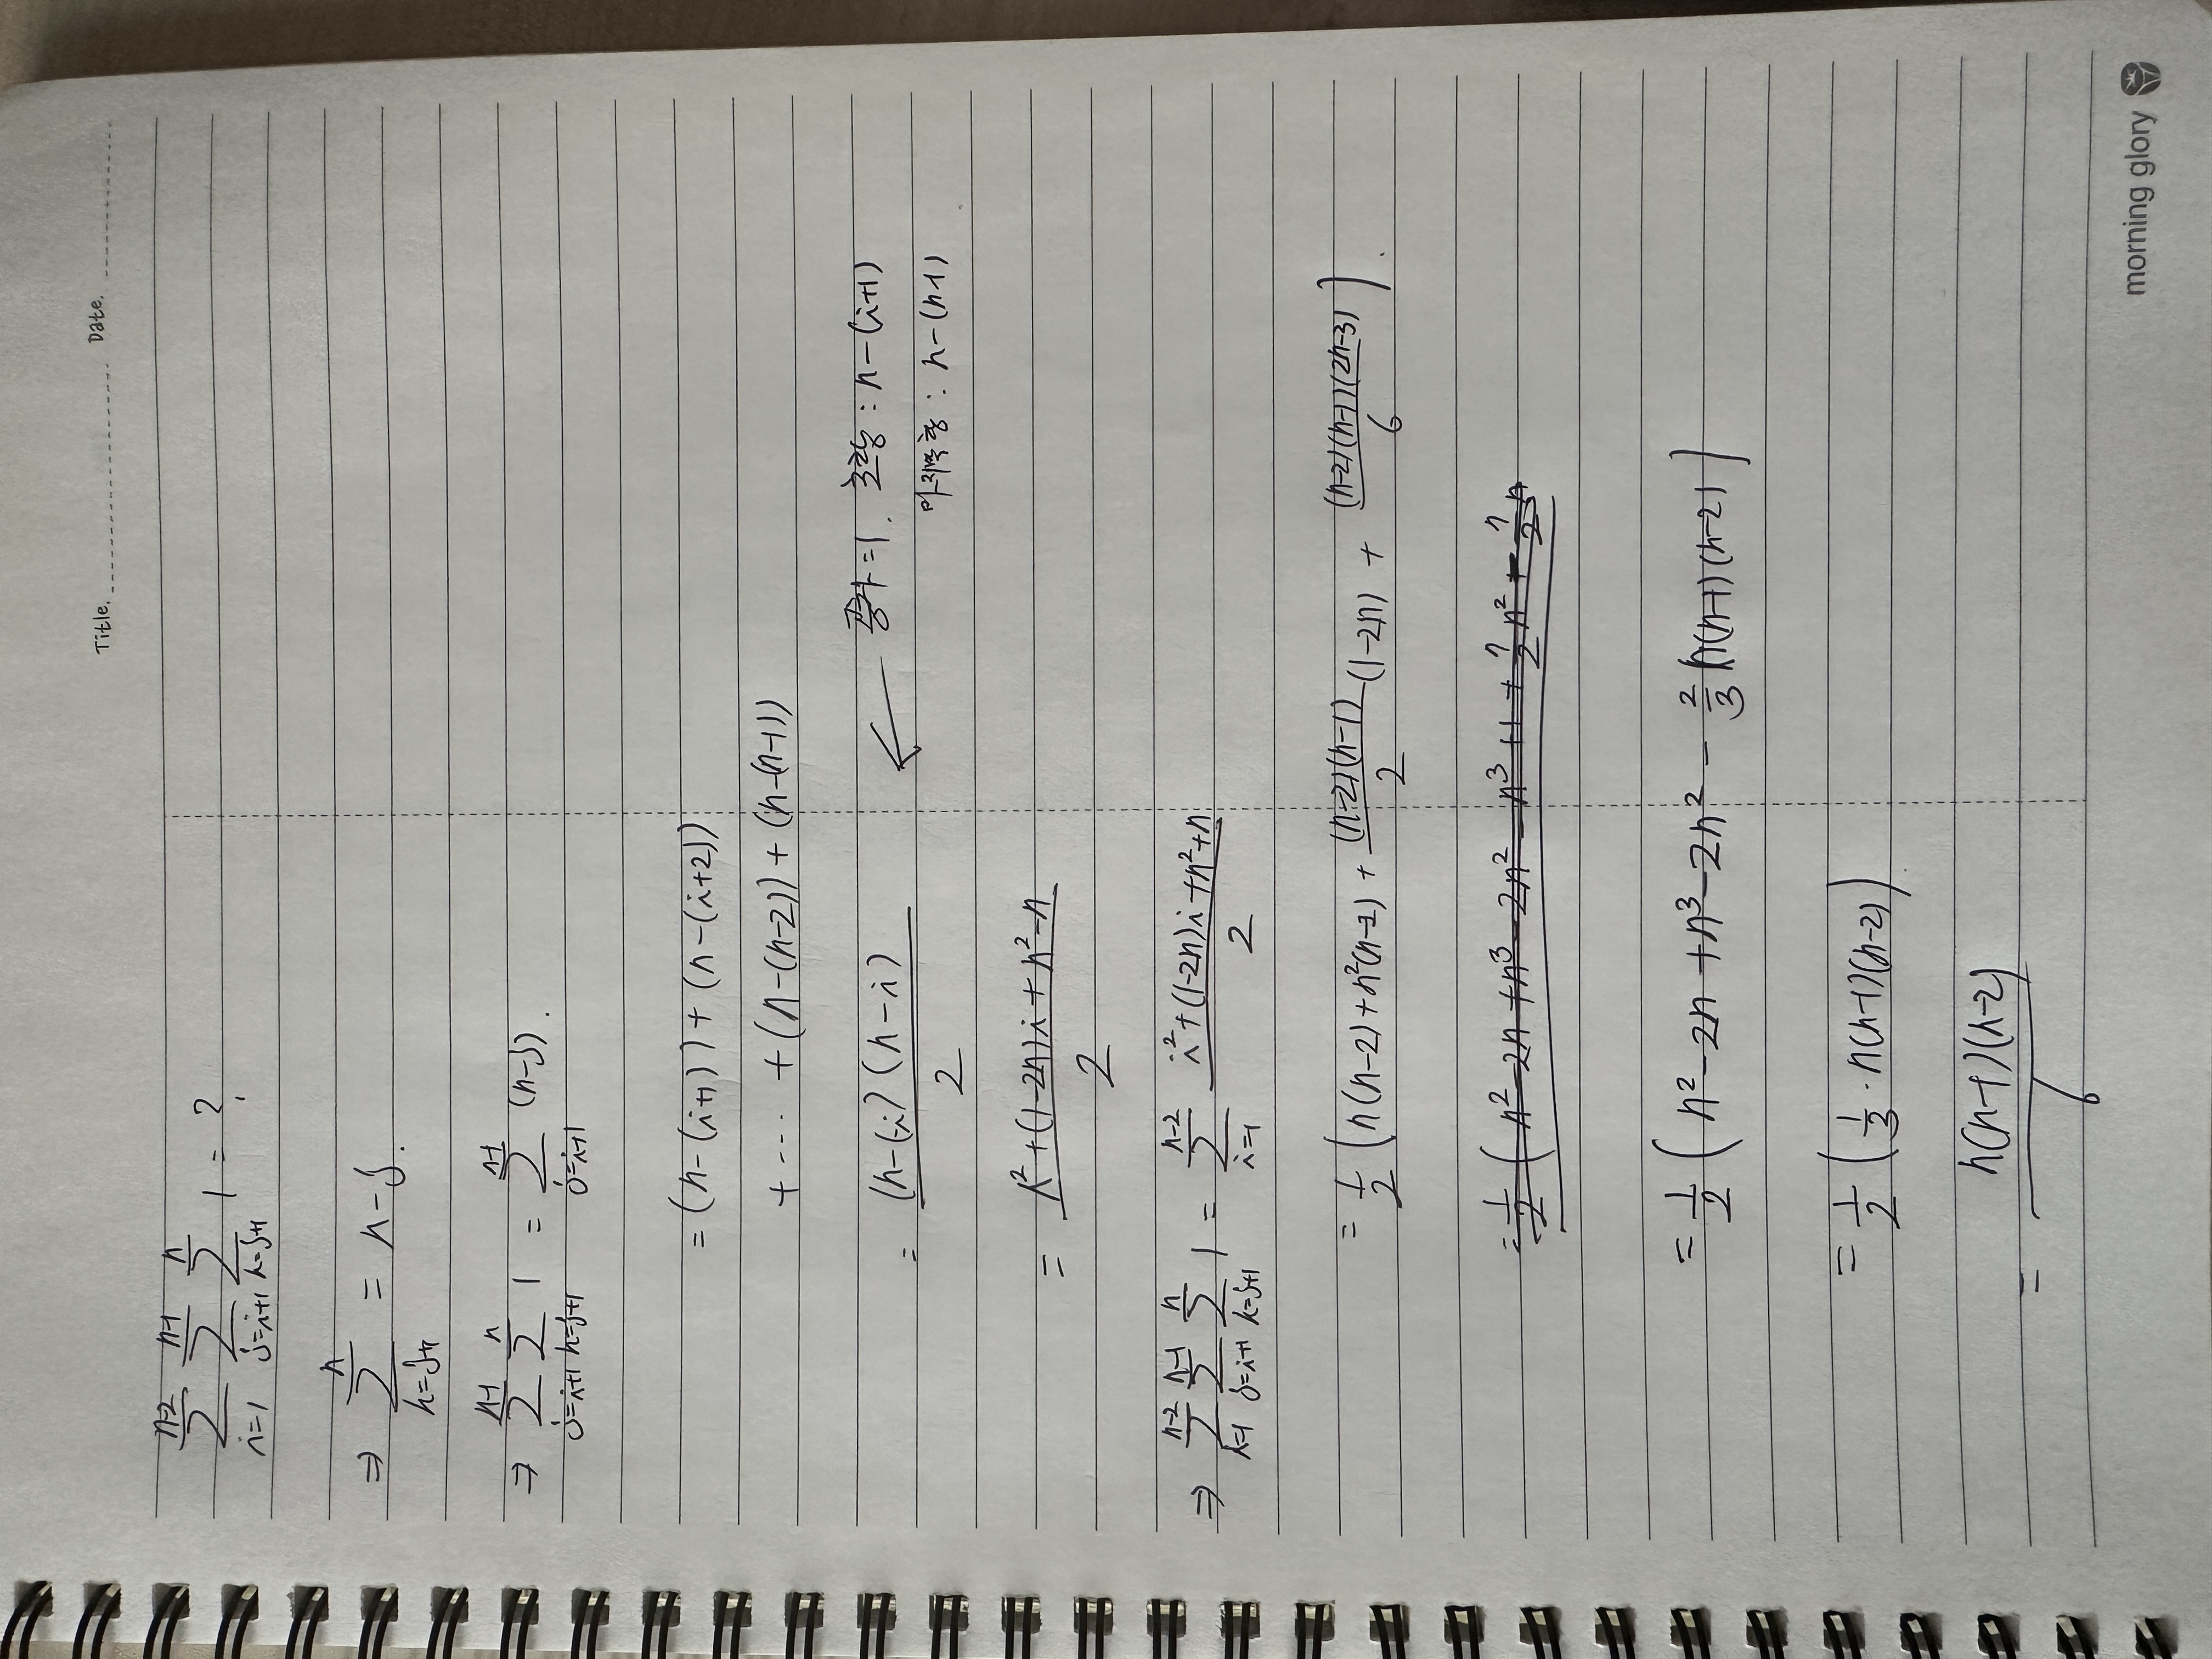 Title. Date.
∑_{i=1}^{n-2} ∑_{j=i+1}^{n-1} ∑_{k=j+1}^{n} 1 = ?
⇒ ∑_{k=j+1}^{n} = n-j.
⇒ ∑_{j=i+1}^{n-1} ∑_{k=j+1}^{n} 1 = ∑_{j=i+1}^{n-1} (n-j).
= (n-(i+1)) + (n-(i+2))
+ ··· + (n-(n-2)) + (n-(n-1))
= \frac{(n-1-i)(n-i)}{2} ← 공차=1. 초항 : n-(i+1)
마지막 항 : n-(n-1)
= \frac{i^2+(1-2n)i+n^2-n}{2}
⇒ ∑_{i=1}^{n-2} ∑_{j=i+1}^{n-1} ∑_{k=j+1}^{n} 1 = ∑_{i=1}^{n-2} \frac{i^2+(1-2n)i+n^2+n}{2}
= \frac{1}{2} ( n(n-2)+n^2(n-2) + \frac{(n-2)(n-1)}{2} (1-2n) + \frac{(n-2)(n-1)(2n-3)}{6} ).
= \frac{1}{2} ( n^2-2n+n^3-2n^2 - \frac{2}{3} n(n-1)(n-2) )
= \frac{1}{2} ( \frac{1}{3} · n(n-1)(n-2) ).
= \frac{n(n-1)(n-2)}{6}
morning glory